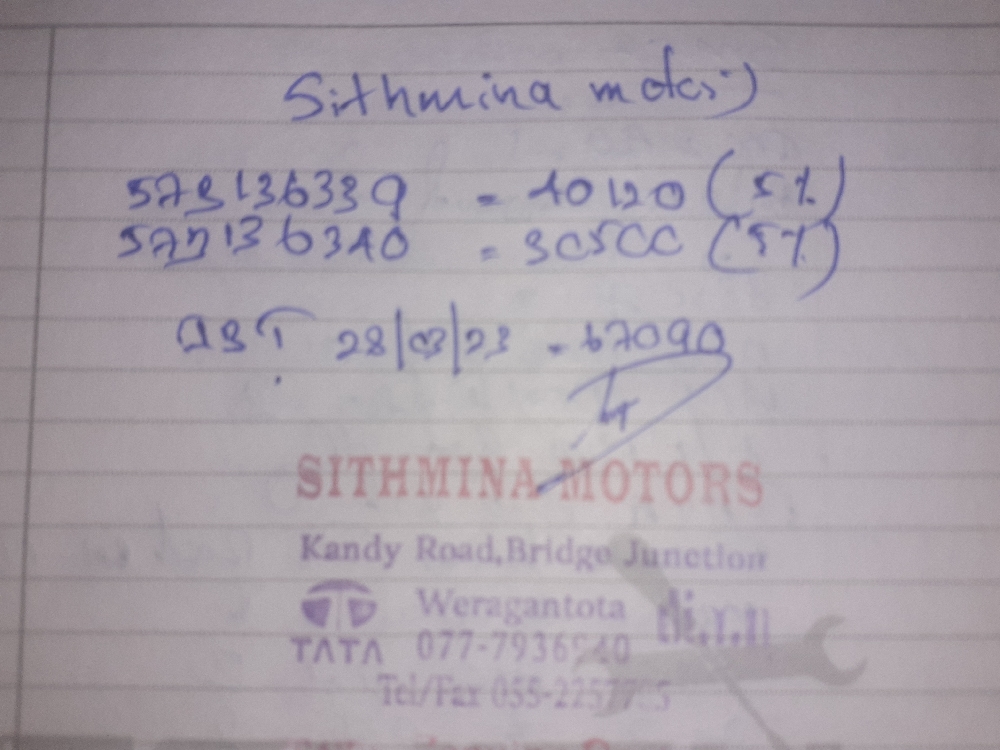 Sithmina motors
573136339 = 40120 (5%)
573136340 = 30500 (5%)
28/03/23 = 67090
SITHMINA MOTORS
Kandy Road, Bridge Junction
Weragantota
TATA 077-7936940
Tel/Fax 055-2257